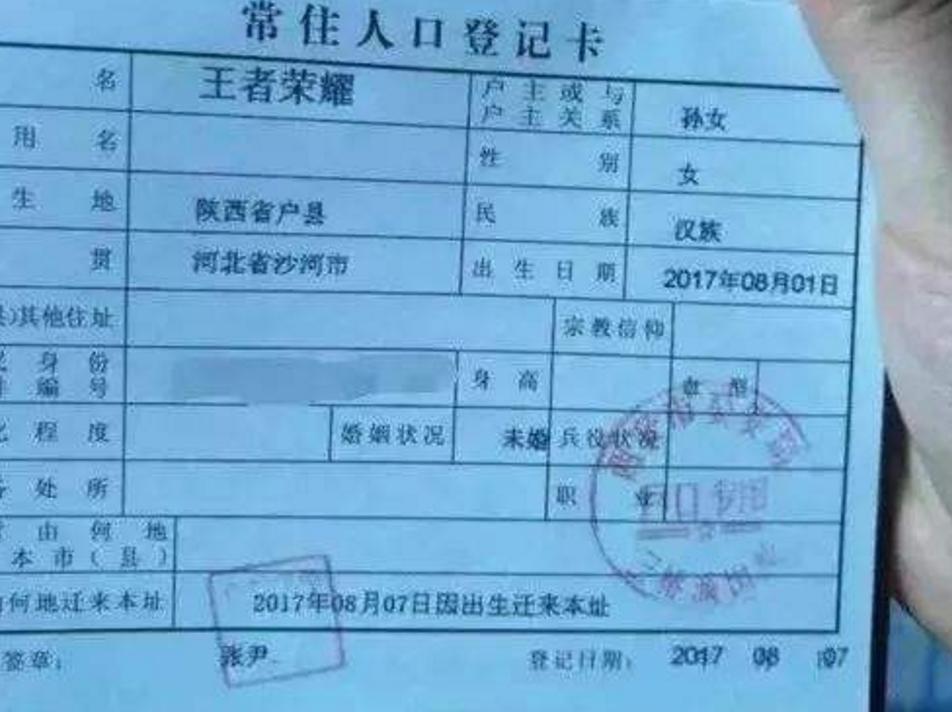 常住人口登记卡
名 王者荣耀 户主或与户主关系 孙女
用名 性别 女
生地 陕西省户县 民族 汉族
贯 河北省沙河市 出生日期 2017年08月01日
其他住址 宗教信仰
身份
编号 身高 血型
程度 婚姻状况 未婚 兵役状况
处所 职业
由何地
本市(县)
何地迁来本址 2017年08月07日因出生迁来本址
签章: 张尹 登记日期: 2017 08 07
户口专用